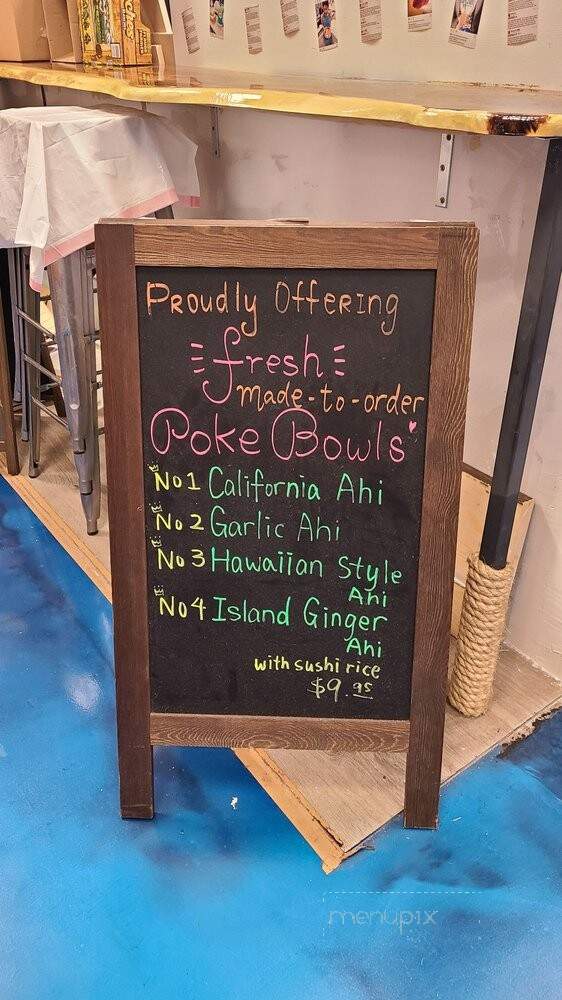 Proudly Offering
fresh
made-to-order
Poke Bowls
No 1 California Ahi
No 2 Garlic Ahi
No 3 Hawaiian Style
Ahi
No 4 Island Ginger
Ahi
with sushi rice
$9.95
menupix